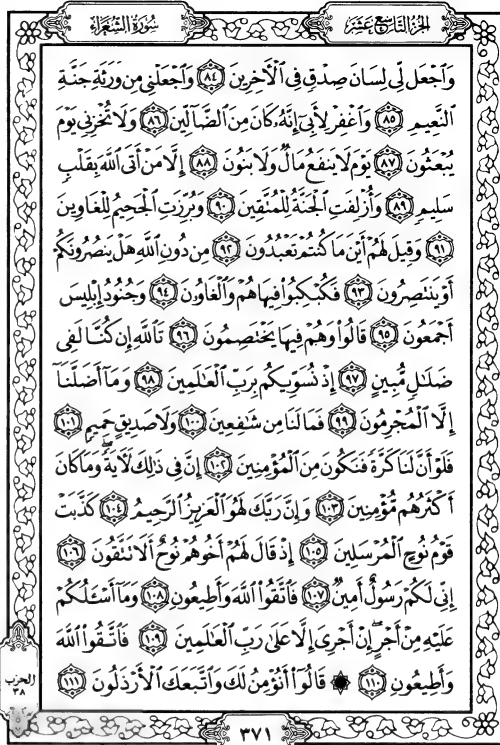 سُورَةُ الشُّعَرَاءِ
الجُزْءُ التَّاسِعَ عَشَرَ
وَٱجْعَل لِّي لِسَانَ صِدْقٍ فِي ٱلْأَخِرِينَ ٨٤ وَٱجْعَلْنِي مِن وَرَثَةِ جَنَّةِ
ٱلنَّعِيمِ ٨٥ وَٱغْفِرْ لِأَبِىٓ إِنَّهُۥ كَانَ مِنَ ٱلضَّآلِّينَ ٨٦ وَلَا تُخْزِنِي يَوْمَ
يُبْعَثُونَ ٨٧ يَوْمَ لَا يَنفَعُ مَالٌ وَلَا بَنُونَ ٨٨ إِلَّا مَنْ أَتَى ٱللَّهَ بِقَلْبٍ
سَلِيمٍ ٨٩ وَأُزْلِفَتِ ٱلْجَنَّةُ لِلْمُتَّقِينَ ٩٠ وَبُرِّزَتِ ٱلْجَحِيمُ لِلْغَاوِينَ
٩١ وَقِيلَ لَهُمْ أَيْنَ مَا كُنتُمْ تَعْبُدُونَ ٩٢ مِن دُونِ ٱللَّهِ هَلْ يَنصُرُونَكُمْ
أَوْ يَنتَصِرُونَ ٩٣ فَكُبْكِبُوا۟ فِيهَا هُمْ وَٱلْغَاوُۥنَ ٩٤ وَجُنُودُ إِبْلِيسَ
أَجْمَعُونَ ٩٥ قَالُوا۟ وَهُمْ فِيهَا يَخْتَصِمُونَ ٩٦ تَٱللَّهِ إِن كُنَّا لَفِي
ضَلَٰلٍ مُّبِينٍ ٩٧ إِذْ نُسَوِّيكُم بِرَبِّ ٱلْعَٰلَمِينَ ٩٨ وَمَآ أَضَلَّنَآ
إِلَّا ٱلْمُجْرِمُونَ ٩٩ فَمَا لَنَا مِن شَٰفِعِينَ ١٠٠ وَلَا صَدِيقٍ حَمِيمٍ ١٠١
فَلَوْ أَنَّ لَنَا كَرَّةً فَنَكُونَ مِنَ ٱلْمُؤْمِنِينَ ١٠٢ إِنَّ فِي ذَٰلِكَ لَأَيَةً ۖ وَمَا كَانَ
أَكْثَرُهُم مُّؤْمِنِينَ ١٠٣ وَإِنَّ رَبَّكَ لَهُوَ ٱلْعَزِيزُ ٱلرَّحِيمُ ١٠٤ كَذَّبَتْ
قَوْمُ نُوحٍ ٱلْمُرْسَلِينَ ١٠٥ إِذْ قَالَ لَهُمْ أَخُوهُمْ نُوحٌ أَلَا تَتَّقُونَ ١٠٦
إِنِّي لَكُمْ رَسُولٌ أَمِينٌ ١٠٧ فَٱتَّقُوا۟ ٱللَّهَ وَأَطِيعُونِ ١٠٨ وَمَآ أَسْـَٔلُكُمْ
عَلَيْهِ مِنْ أَجْرٍ ۖ إِنْ أَجْرِىَ إِلَّا عَلَىٰ رَبِّ ٱلْعَٰلَمِينَ ١٠٩ فَٱتَّقُوا۟ ٱللَّهَ
وَأَطِيعُونِ ١١٠ ۞ قَالُوٓا۟ أَنُؤْمِنُ لَكَ وَٱتَّبَعَكَ ٱلْأَرْذَلُونَ ١١١
الحزب
٣٨
٣٧١